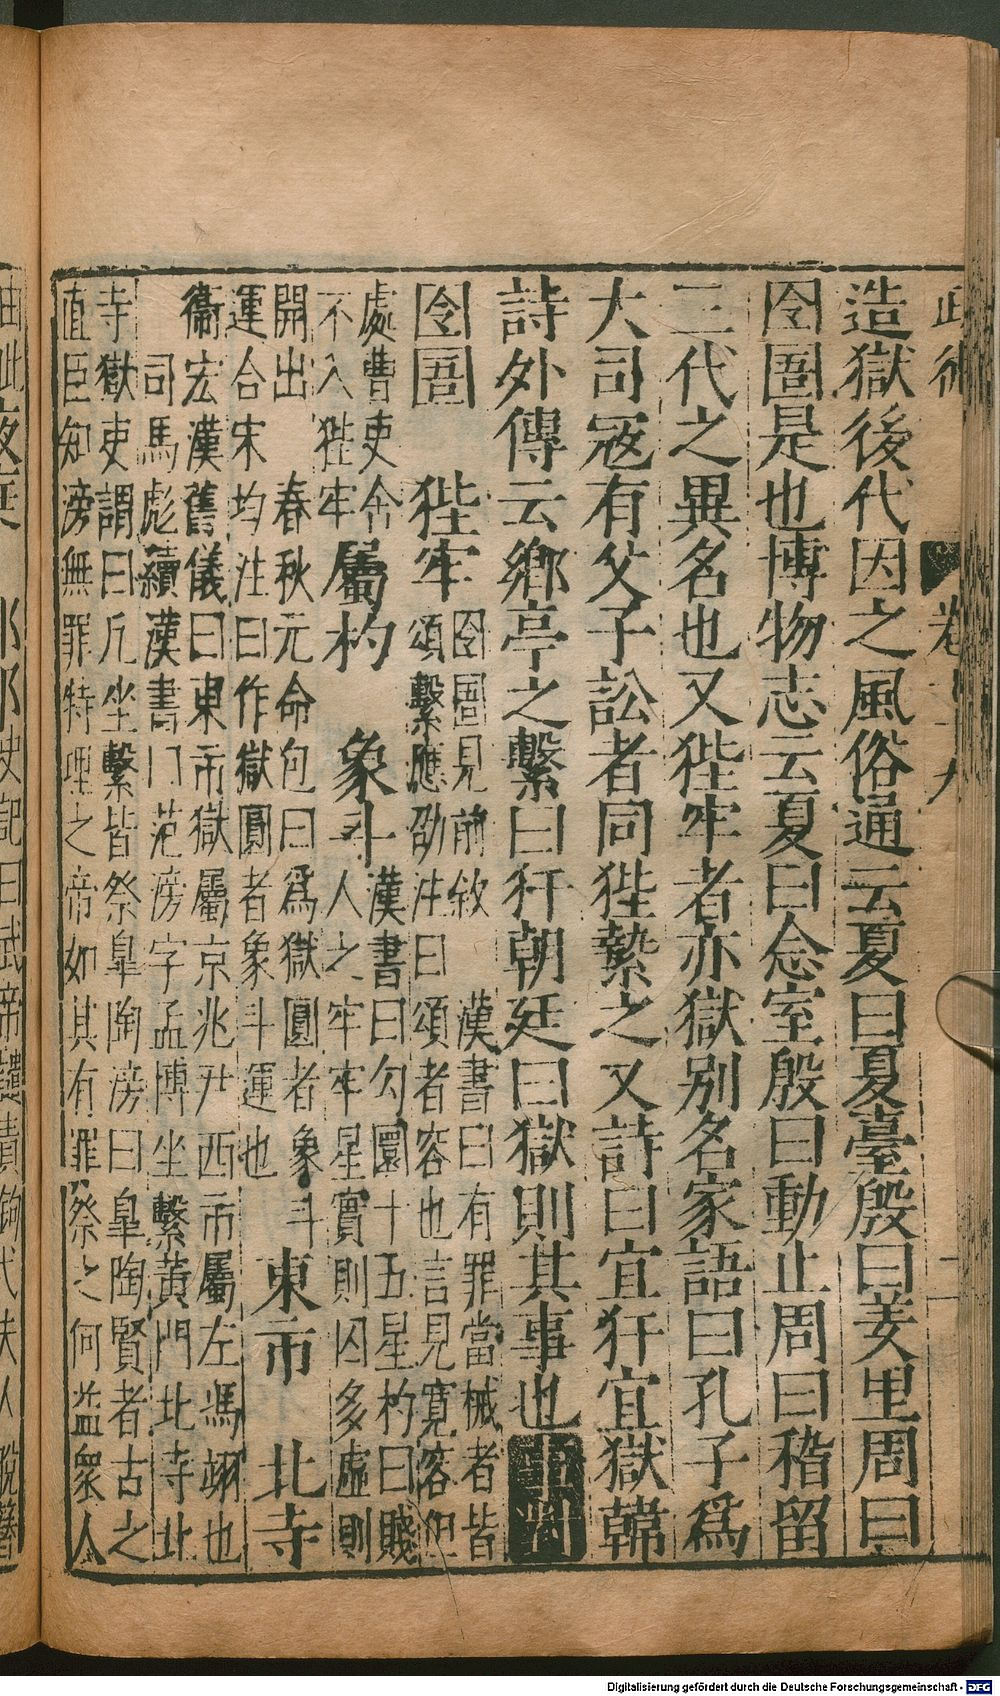 造獄後代因之風俗通云夏曰夏臺殷曰羑里周曰
囹圄是也博物志云夏曰念室殷曰動止周曰稽留
三代之異名也又狴牢者亦獄別名家語曰孔子爲
大司寇有父子訟者同狴縶之又詩曰宜犴宜獄韓
詩外傳云鄉亭之繫曰犴朝廷曰獄則其事也事對
囹圄 狴牢 囹圄見前敘 漢書曰有罪當械者皆
頌繫應劭注曰頌者容也言見寬容但
處曹吏舍
不入狴牢 屬杓 象斗 漢書曰勾圜十五星杓曰賤
人之牢牢星實則囚多虛則
開出 春秋元命包曰爲獄圓者象斗
運合宋均注曰作獄圓者象斗運也 東市 北寺
衞宏漢舊儀曰東市獄屬京兆尹西市屬左馮翊也
司馬彪續漢書曰范滂字孟博坐繫黃門北寺北
寺獄吏謂曰凡坐繫皆祭臯陶滂曰臯陶賢者古之
直臣知滂無罪特理之帝如其有罪祭之何益衆人
Digitalisierung gefördert durch die Deutsche Forschungsgemeinschaft - DFG